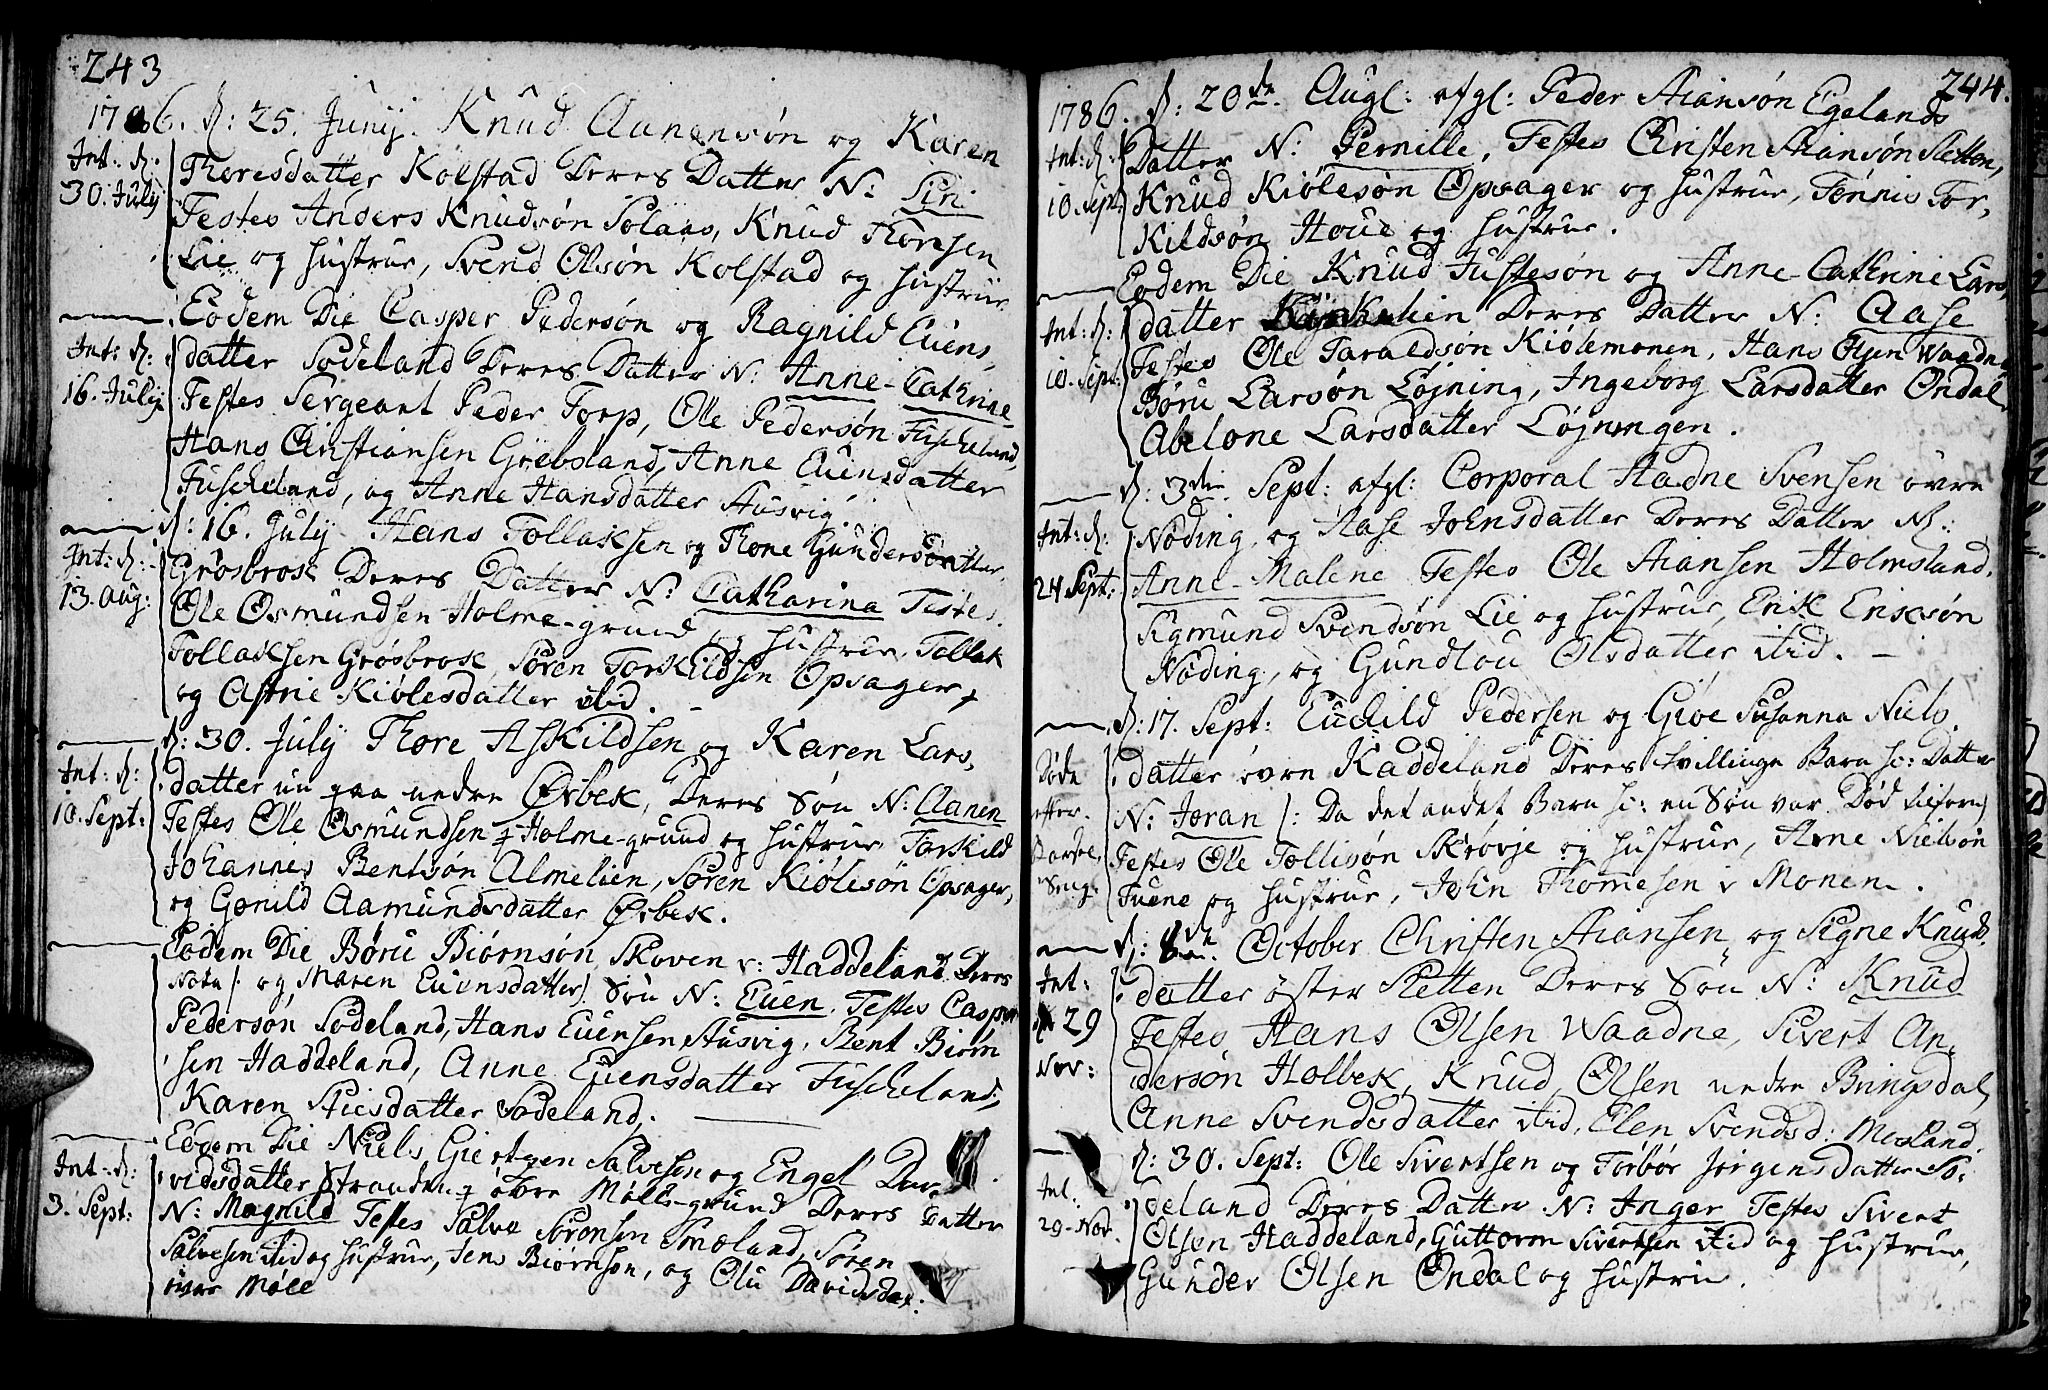 243
1786. d: 25. Junij. Knud Aanensøn og Karen
Int: d: Thoresdatter Kolstad Deres Datter N: Siri
30. July Testes Anders Knudsøn Solaas, Knud Thorsen
Lie og hustrue, Svend Olsøn Kolstad og hustrue
Eodem Die Casper Pedersøn og Ragnild Euens,
Int: d: datter Sodeland Deres Datter N: Anne-Cathrine
16. July Testes Sergeant Peder Torp, Ole Pedersøn Fuscheland,
Hans Christiansen Grebsland, Anne Euensdatter
Fuscheland, og Anne Hansdatter Ausvig.
d: 16. July Hans Tollaksen og Thone Gundersdatter
Int: d: Grøsbrosk Deres Datter N: Catharina Testes
13. Aug: Ole Osmundsen Holme-grund og hustrue, Tollak
Tollaksen Grøsbrosk, Søren Torkildsen Opsager,
og Astrie Kiølesdatter itid.
d: 30. July Thore Askildsen og Karen Lars,
Int: d: datter nu paa nedre Ørbek, Deres Søn N: Aanen
10. Sept: Testes Ole Osmundsen Holme-grund og hustrue Torkild
Johannes Bentsøn Almelien, Søren Kiølesøn Opsager,
og Gonild Aamundsdatter Ørbek.
Eodem Die Børu Biørnsøn Skoven v: Haddeland Deres
Nota /: og Maren Euensdatter) Søn N: Euen. Testes Casper
Pedersøn Sodeland, Hans Euensen Ausvig, Bent Biørn
sen Haddeland, Anne Euensdatter Fuscheland,
Karen Stiesdatter Sodeland.
Eodem Die Niels Giertsen Salvesen og Engel Da,
Int: d: vidsdatter Stranden øvre Mølle-grund Deres Datter
3. Sept: N: Magnild Testes Salve Sørensen Smeland, Søren
Salvesen itid og hustrue, Jens Biørnsen, og Olu Davidsdat:
øvre Møll
244.
1786. d: 20de Augl: afgl: Peder Aiansøn Egelands
Int: d: Datter N: Pernille, Testes Christen Aiansøn Sletten,
10. Sept: Knud Kiølesøn Opsager og hustrue, Tønnis Tor,
Kildsøn Houe og hustrue.
Eodem Die Knud Justesøn og Anne-Cathrine Lars,
Int: d: datter Deres Datter N: Aase
10. Sept: Testes Ole Taraldsøn Kiølemonen, Hans Olsen Waadne
Børu Larsøn Løjning, Ingeborg Larsdatter Ondal,
Abelone Larsdatter Løjningen.
d: 3die Sept: afgl: Corporal Aadne Svensen øvre
Int: d: Nøding, og Aase Johnsdatter Deres Datter N:
24 Sept: Anne-Malene Testes Ole Aiansen Holmsland,
Sigmund Svendsøn Lie og hustrue, Erik Eriksøn
Nøding, og Gundlou Olsdatter itid. -
d: 17. Sept: Euchild Pedersen og Giøe Susanna Niels,
Døde datter øvre Kaddeland Deres tvillinge Barn sc: Datter
efter N: Joran /: Da det andet Barn sc: en Søn var Død
Barsel Testes Ole Tollisøn Skrøvje og hustrue, Arne Nielsøn
Seng: Tuene og hustrue, John Thomesen i Monen.
d: 8de October Christen Aiansen og Signe Knud,
Int: datter øster Sletten Deres Søn N: Knud
d: 29 Testes Hans Olsen Waadne, Sivert An,
Nov: dersøn Holbek, Knud Olsen nedre Bringsdal,
Anne Svendsdatter itid, Elen Svendsd: Mosland.
d: 30. Sept: Ole Sivertsen og Torbør Jørgensdatter So:
Int. deland Deres Datter N: Inger Testes Sivert
29-Nov. Olsen Haddeland, Guttorm Sivertsen itid og hustrue,
Gunder Olsen Ondal og hustrue.